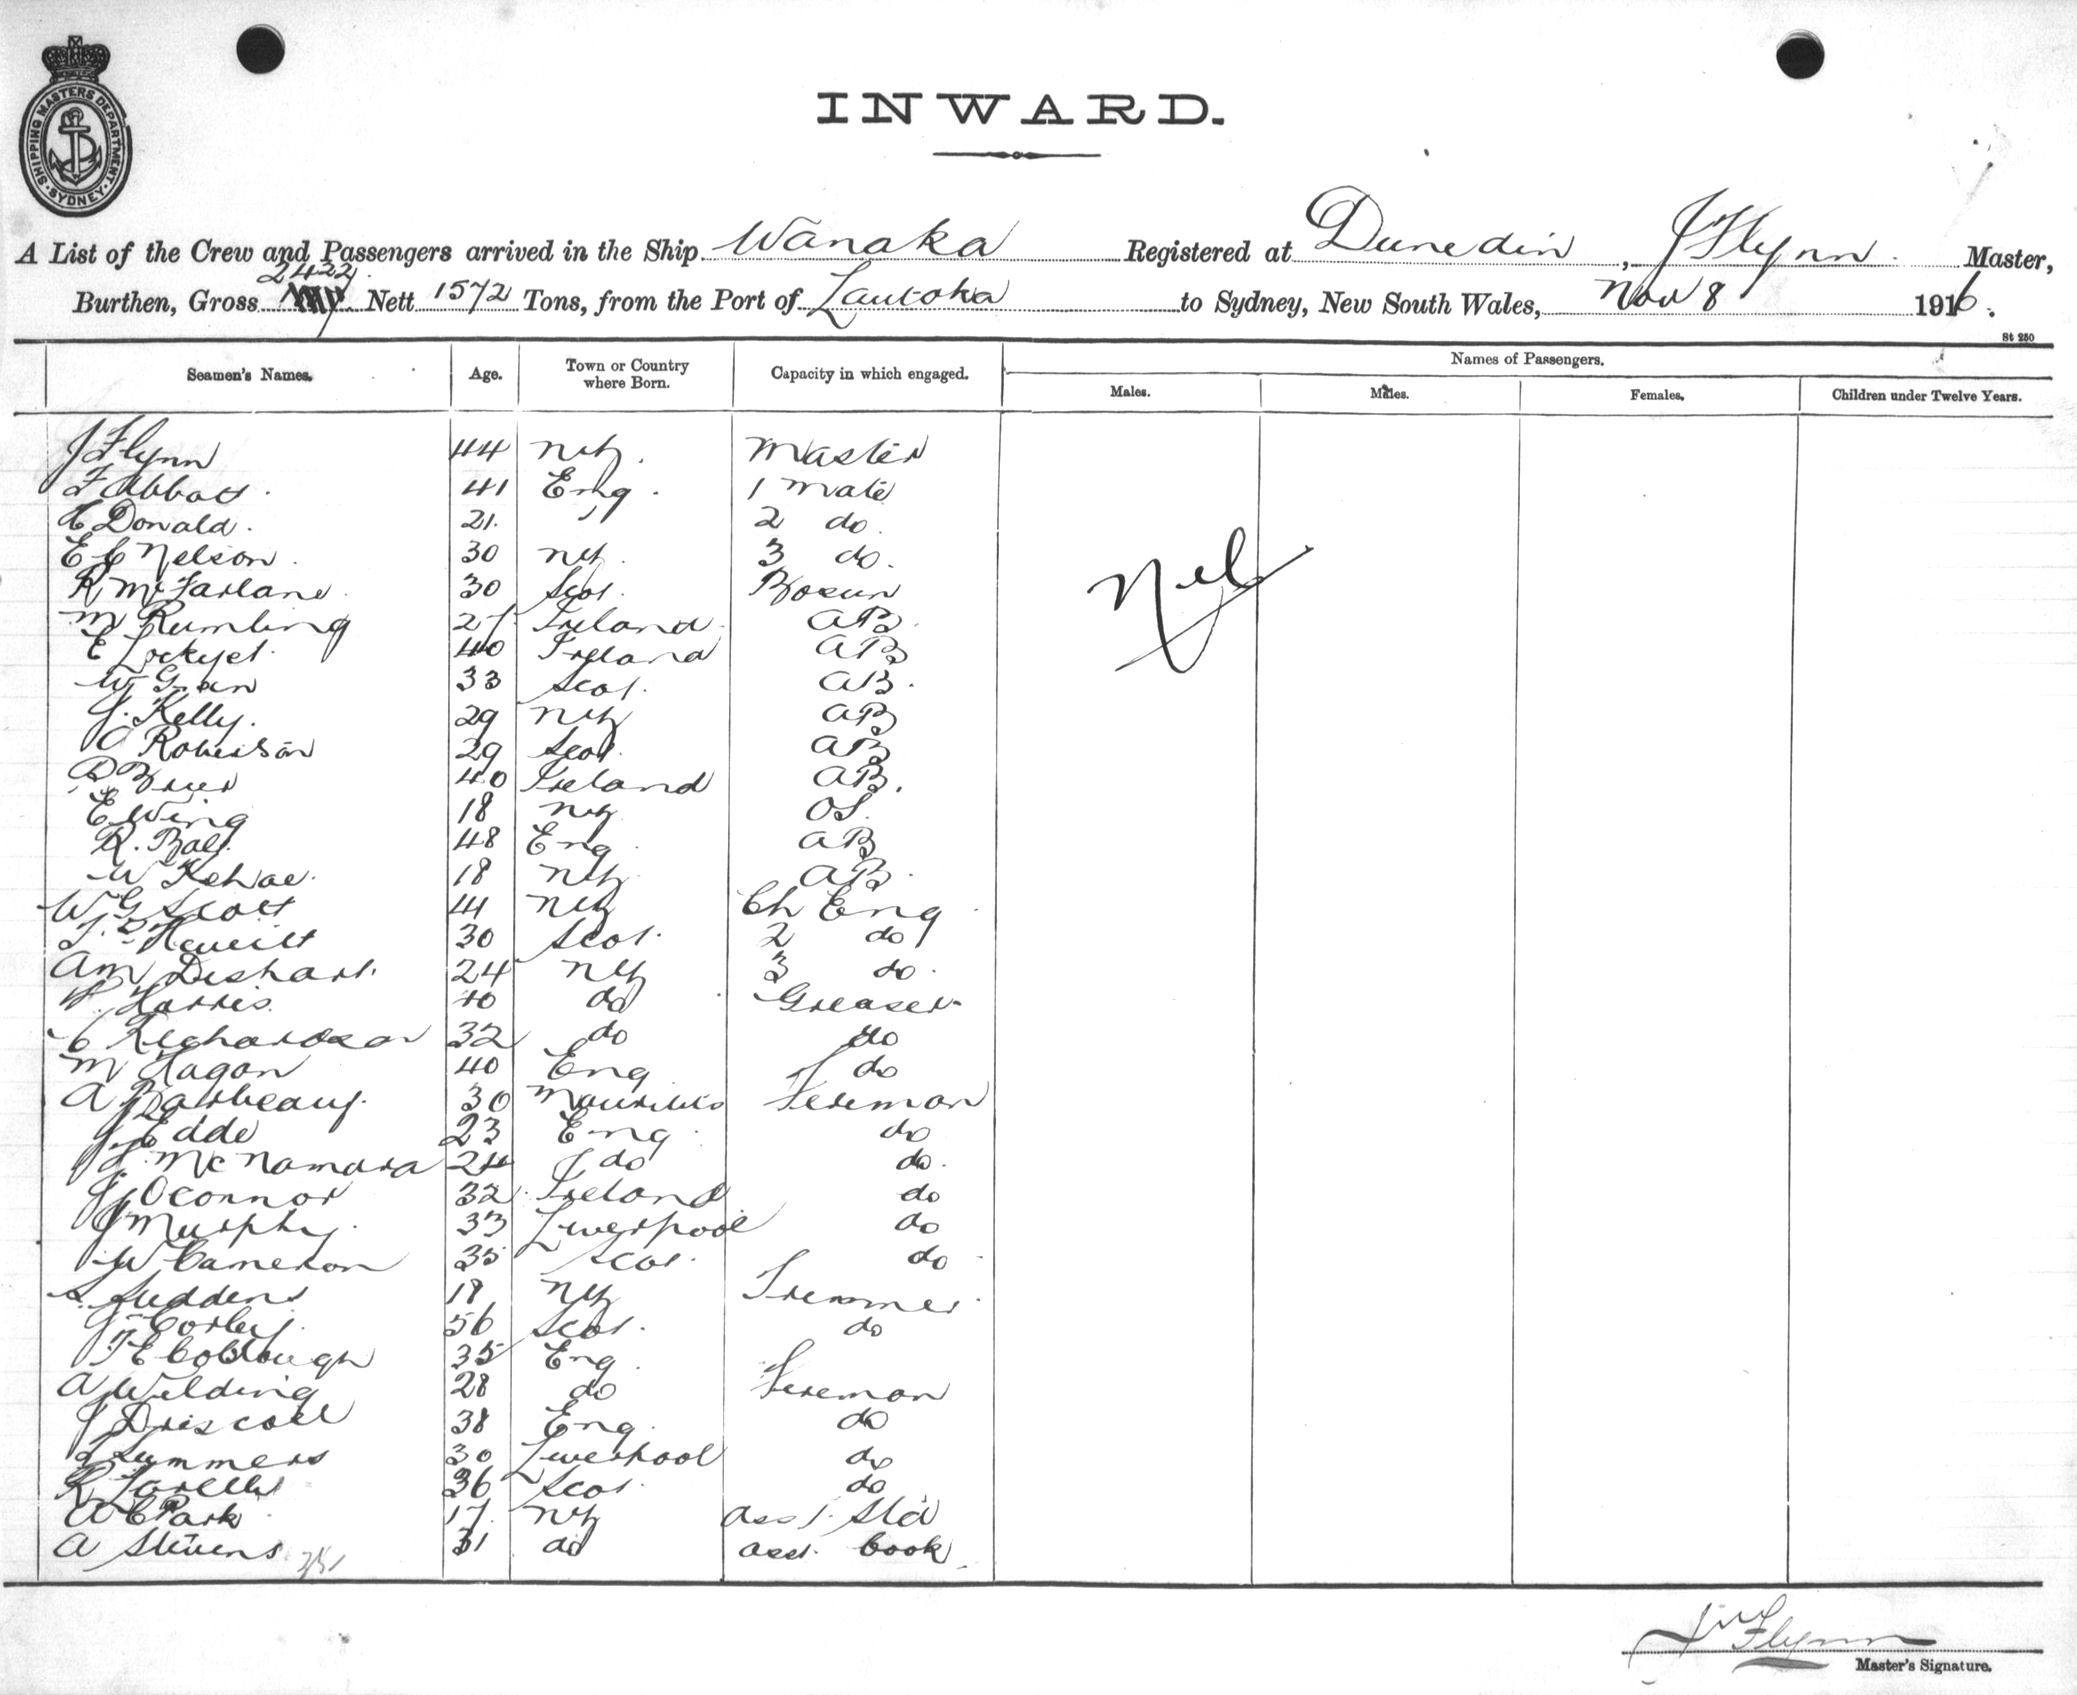 SHIPPING MASTERS DEPARTMENT · SYDNEY ·
INWARD.
A List of the Crew and Passengers arrived in the Ship Wanaka Registered at Dunedin, J Flynn Master,
Burthen, Gross 2422 Nett 1572 Tons, from the Port of Lautoka to Sydney, New South Wales, Nov 8 1916.
St 250
Seamen's Names. Age. Town or Country where Born. Capacity in which engaged. Names of Passengers.
Males. Males. Females. Children under Twelve Years.
J Flynn 44 NZ. Master
F Abbott. 41 Eng. 1 Mate
Donald. 21. " 2 do.
E C Nelson. 30 NZ. 3 do.
R McFarlane. 30 Scot. Bosun
Nil
M Rumling 27. Ireland. AB.
E Lockyet. 40 Ireland AB
W 33 Scot. AB.
J. Kelly. 29 NZ AB
Robertson 29 Scot. AB
40 Ireland AB.
E Wing 18 NZ. OS.
R. 48 Eng. AB
W Kehoe. 18 NZ. AB.
W G Scott 41 NZ Ch Eng.
Hewitt 30 Scot. 2 do
A M Dishart. 24 NZ 3 do.
Harris. 40 do Greaser
C Richardson 32 do do
M Hagan 40 Eng do
A Barbeauy. 30 Mauritius Fireman
J Edde 23 Eng. do
J. McNamara 24 do do.
J Oconnor 32. Ireland do
J Murphy. 33 Liverpool do
W Cameron 35 Scot. do
S. Suddens 18 NZ Trimmer
J Corley. 56 Scot. do
F E Coblough 35 Eng.
A Wilding 28 do Fireman
J Driscoll 38 Eng. do
Summers 30 Liverpool do
R 36 Scot. do
A C Park 17. NZ Asst. Std
A Stevens 31 do Asst. Cook
J Flynn
Master's Signature.